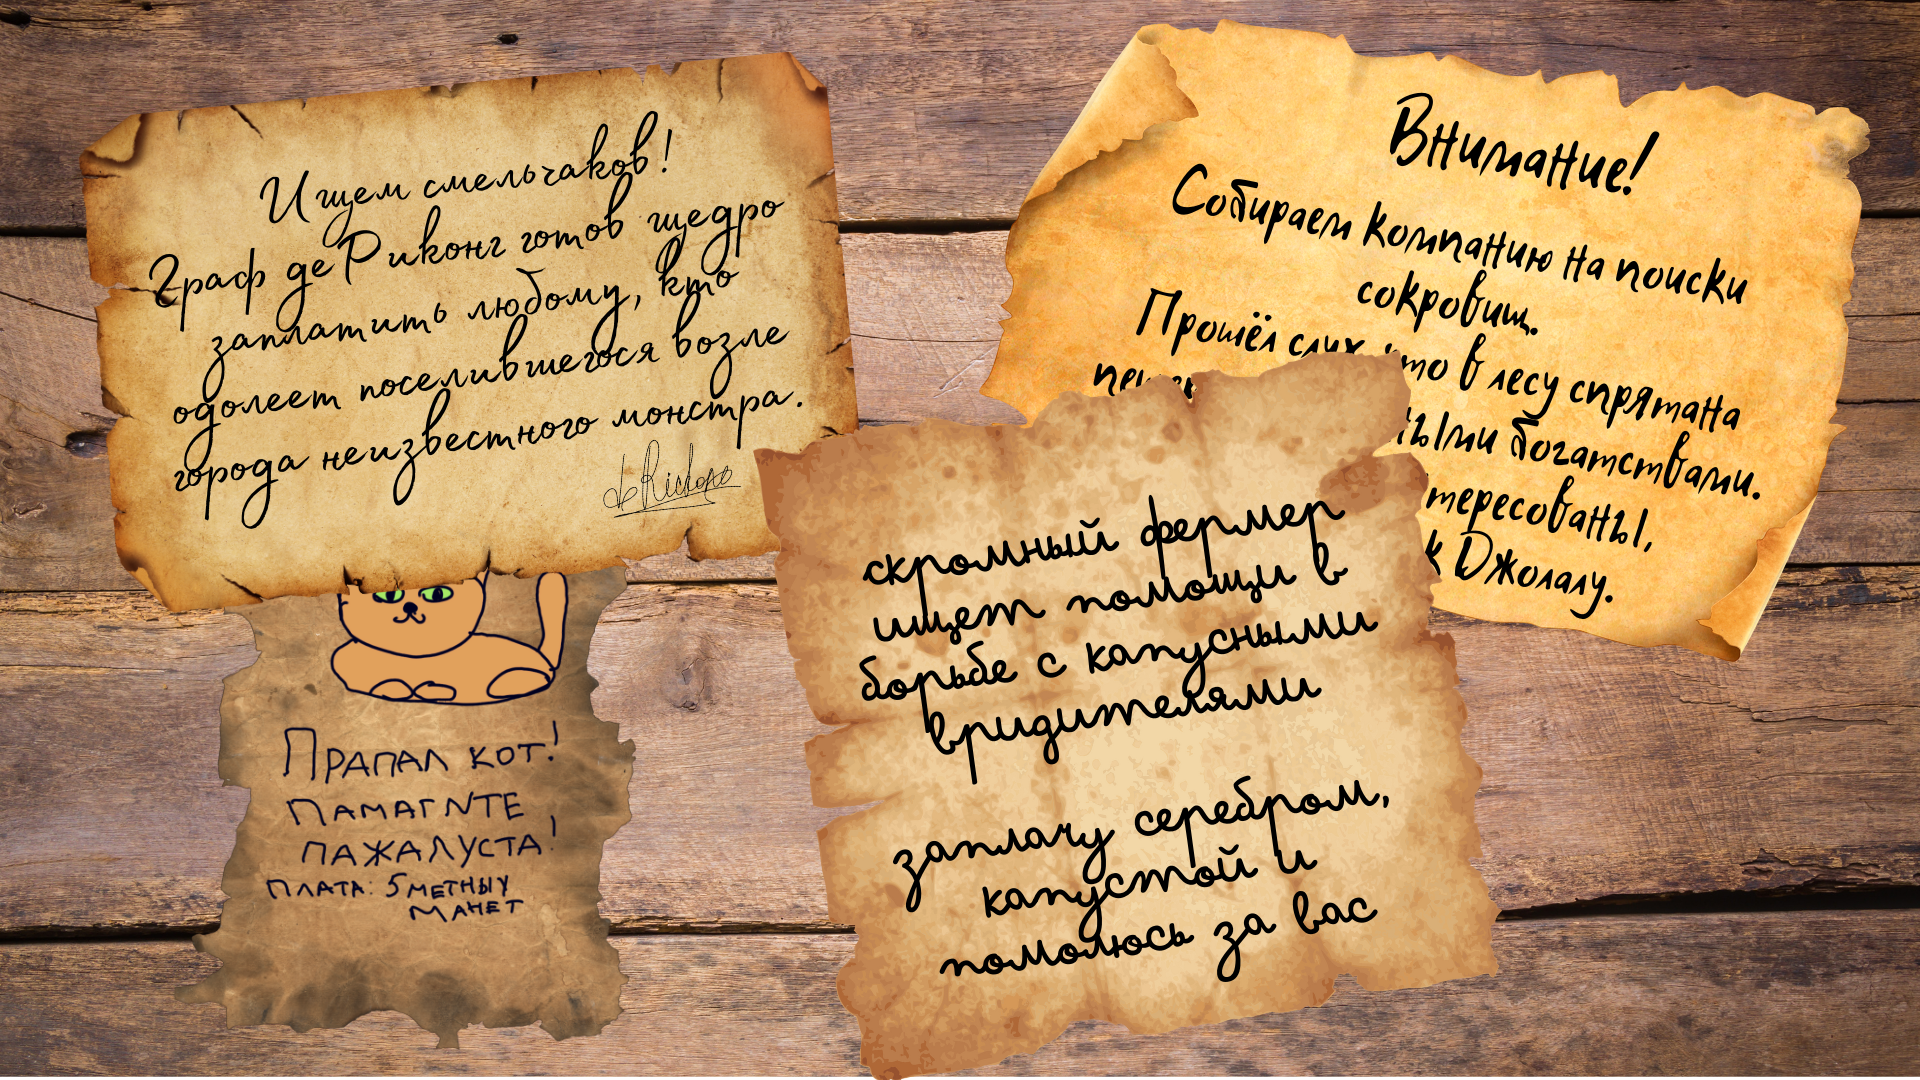 Ищем смельчаков!
Граф де Риконг готов щедро
заплатить любому, кто
одолеет поселившегося возле
города неизвестного монстра.
Внимание!
Собираем компанию на поиски
сокровищ.
Прошёл слух, что в лесу спрятана
ными богатствами.
тересованы,
к Джолалу.
скромный фермер
ищет помощи в
борьбе с капусными
вридителями
заплачу серебром,
капустой и
помолюсь за вас
Прапал кот!
памагите
пажалуста!
плата: 5 метных
манет